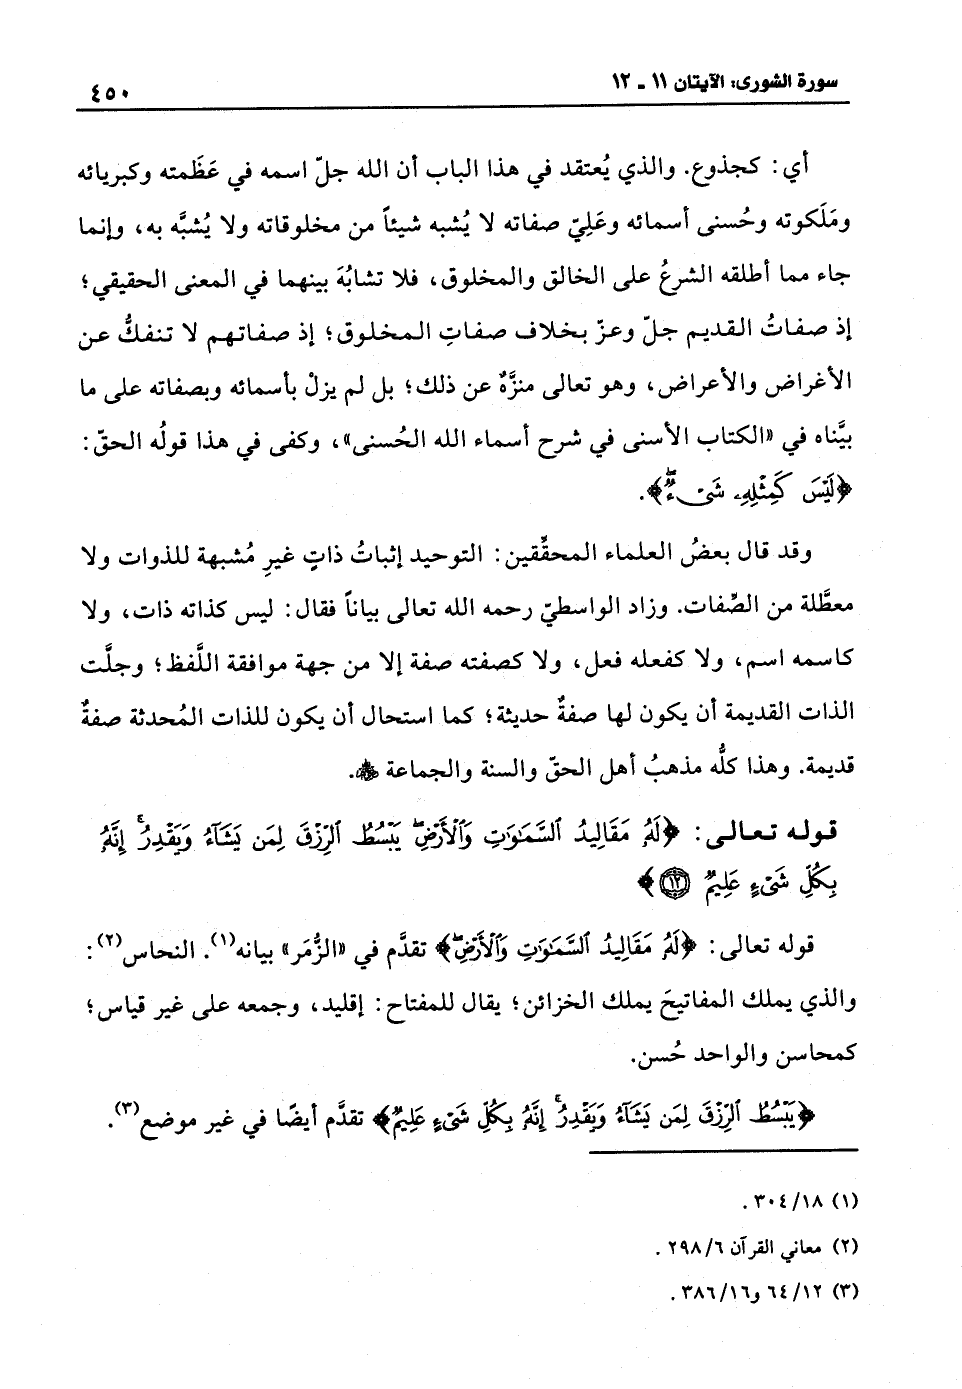 سورة الشورى: الآيتان ١١ - ١٢
٤٥٠
أي: كجذوع. والذي يُعتقد في هذا الباب أن الله جلّ اسمه في عَظَمته وكبريائه
ومَلَكوته وحُسنى أسمائه وعَلِيّ صفاته لا يُشبه شيئاً من مخلوقاته ولا يُشبَّه به، وإنما
جاء مما أطلقه الشرعُ على الخالق والمخلوق، فلا تشابُهَ بينهما في المعنى الحقيقي؛
إذ صفاتُ القديم جلّ وعزّ بخلاف صفاتِ المخلوق؛ إذ صفاتهم لا تنفكُّ عن
الأغراض والأعراض، وهو تعالى منزَّهٌ عن ذلك؛ بل لم يزلْ بأسمائه وبصفاته على ما
بيَّناه في «الكتاب الأسنى في شرح أسماء الله الحُسنى»، وكفى في هذا قولُه الحقّ:
﴿لَيْسَ كَمِثْلِهِۦ شَىْءٌۖ﴾.
وقد قال بعضُ العلماء المحقِّقين: التوحيد إثباتُ ذاتٍ غيرِ مُشبهة للذوات ولا
معطَّلة من الصِّفات. وزاد الواسطيّ رحمه الله تعالى بياناً فقال: ليس كذاته ذات، ولا
كاسمه اسم، ولا كفعله فعل، ولا كصفته صفة إلا من جهة موافقة اللَّفظ؛ وجلَّت
الذات القديمة أن يكون لها صفةٌ حديثة؛ كما استحال أن يكون للذات المُحدثة صفةٌ
قديمة. وهذا كلُّه مذهبُ أهل الحقّ والسنة والجماعة ﷺ.
قوله تعالى: ﴿لَهُۥ مَقَالِيدُ ٱلسَّمَٰوَٰتِ وَٱلْأَرْضِۖ يَبْسُطُ ٱلرِّزْقَ لِمَن يَشَآءُ وَيَقْدِرُۚ إِنَّهُۥ
بِكُلِّ شَىْءٍ عَلِيمٌ ١٢﴾
قوله تعالى: ﴿لَهُۥ مَقَالِيدُ ٱلسَّمَٰوَٰتِ وَٱلْأَرْضِۖ﴾ تقدَّم في «الزُّمَر» بيانه(١). النحاس(٢):
والذي يملك المفاتيحَ يملك الخزائن؛ يقال للمفتاح: إقليد، وجمعه على غير قياس؛
كمحاسن والواحد حُسن.
﴿يَبْسُطُ ٱلرِّزْقَ لِمَن يَشَآءُ وَيَقْدِرُۚ إِنَّهُۥ بِكُلِّ شَىْءٍ عَلِيمٌ﴾ تقدَّم أيضًا في غير موضع(٣).
(١) ٣٠٤/١٨ .
(٢) معاني القرآن ٢٩٨/٦ .
(٣) ٦٤/١٢ و٣٨٦/١٦ .